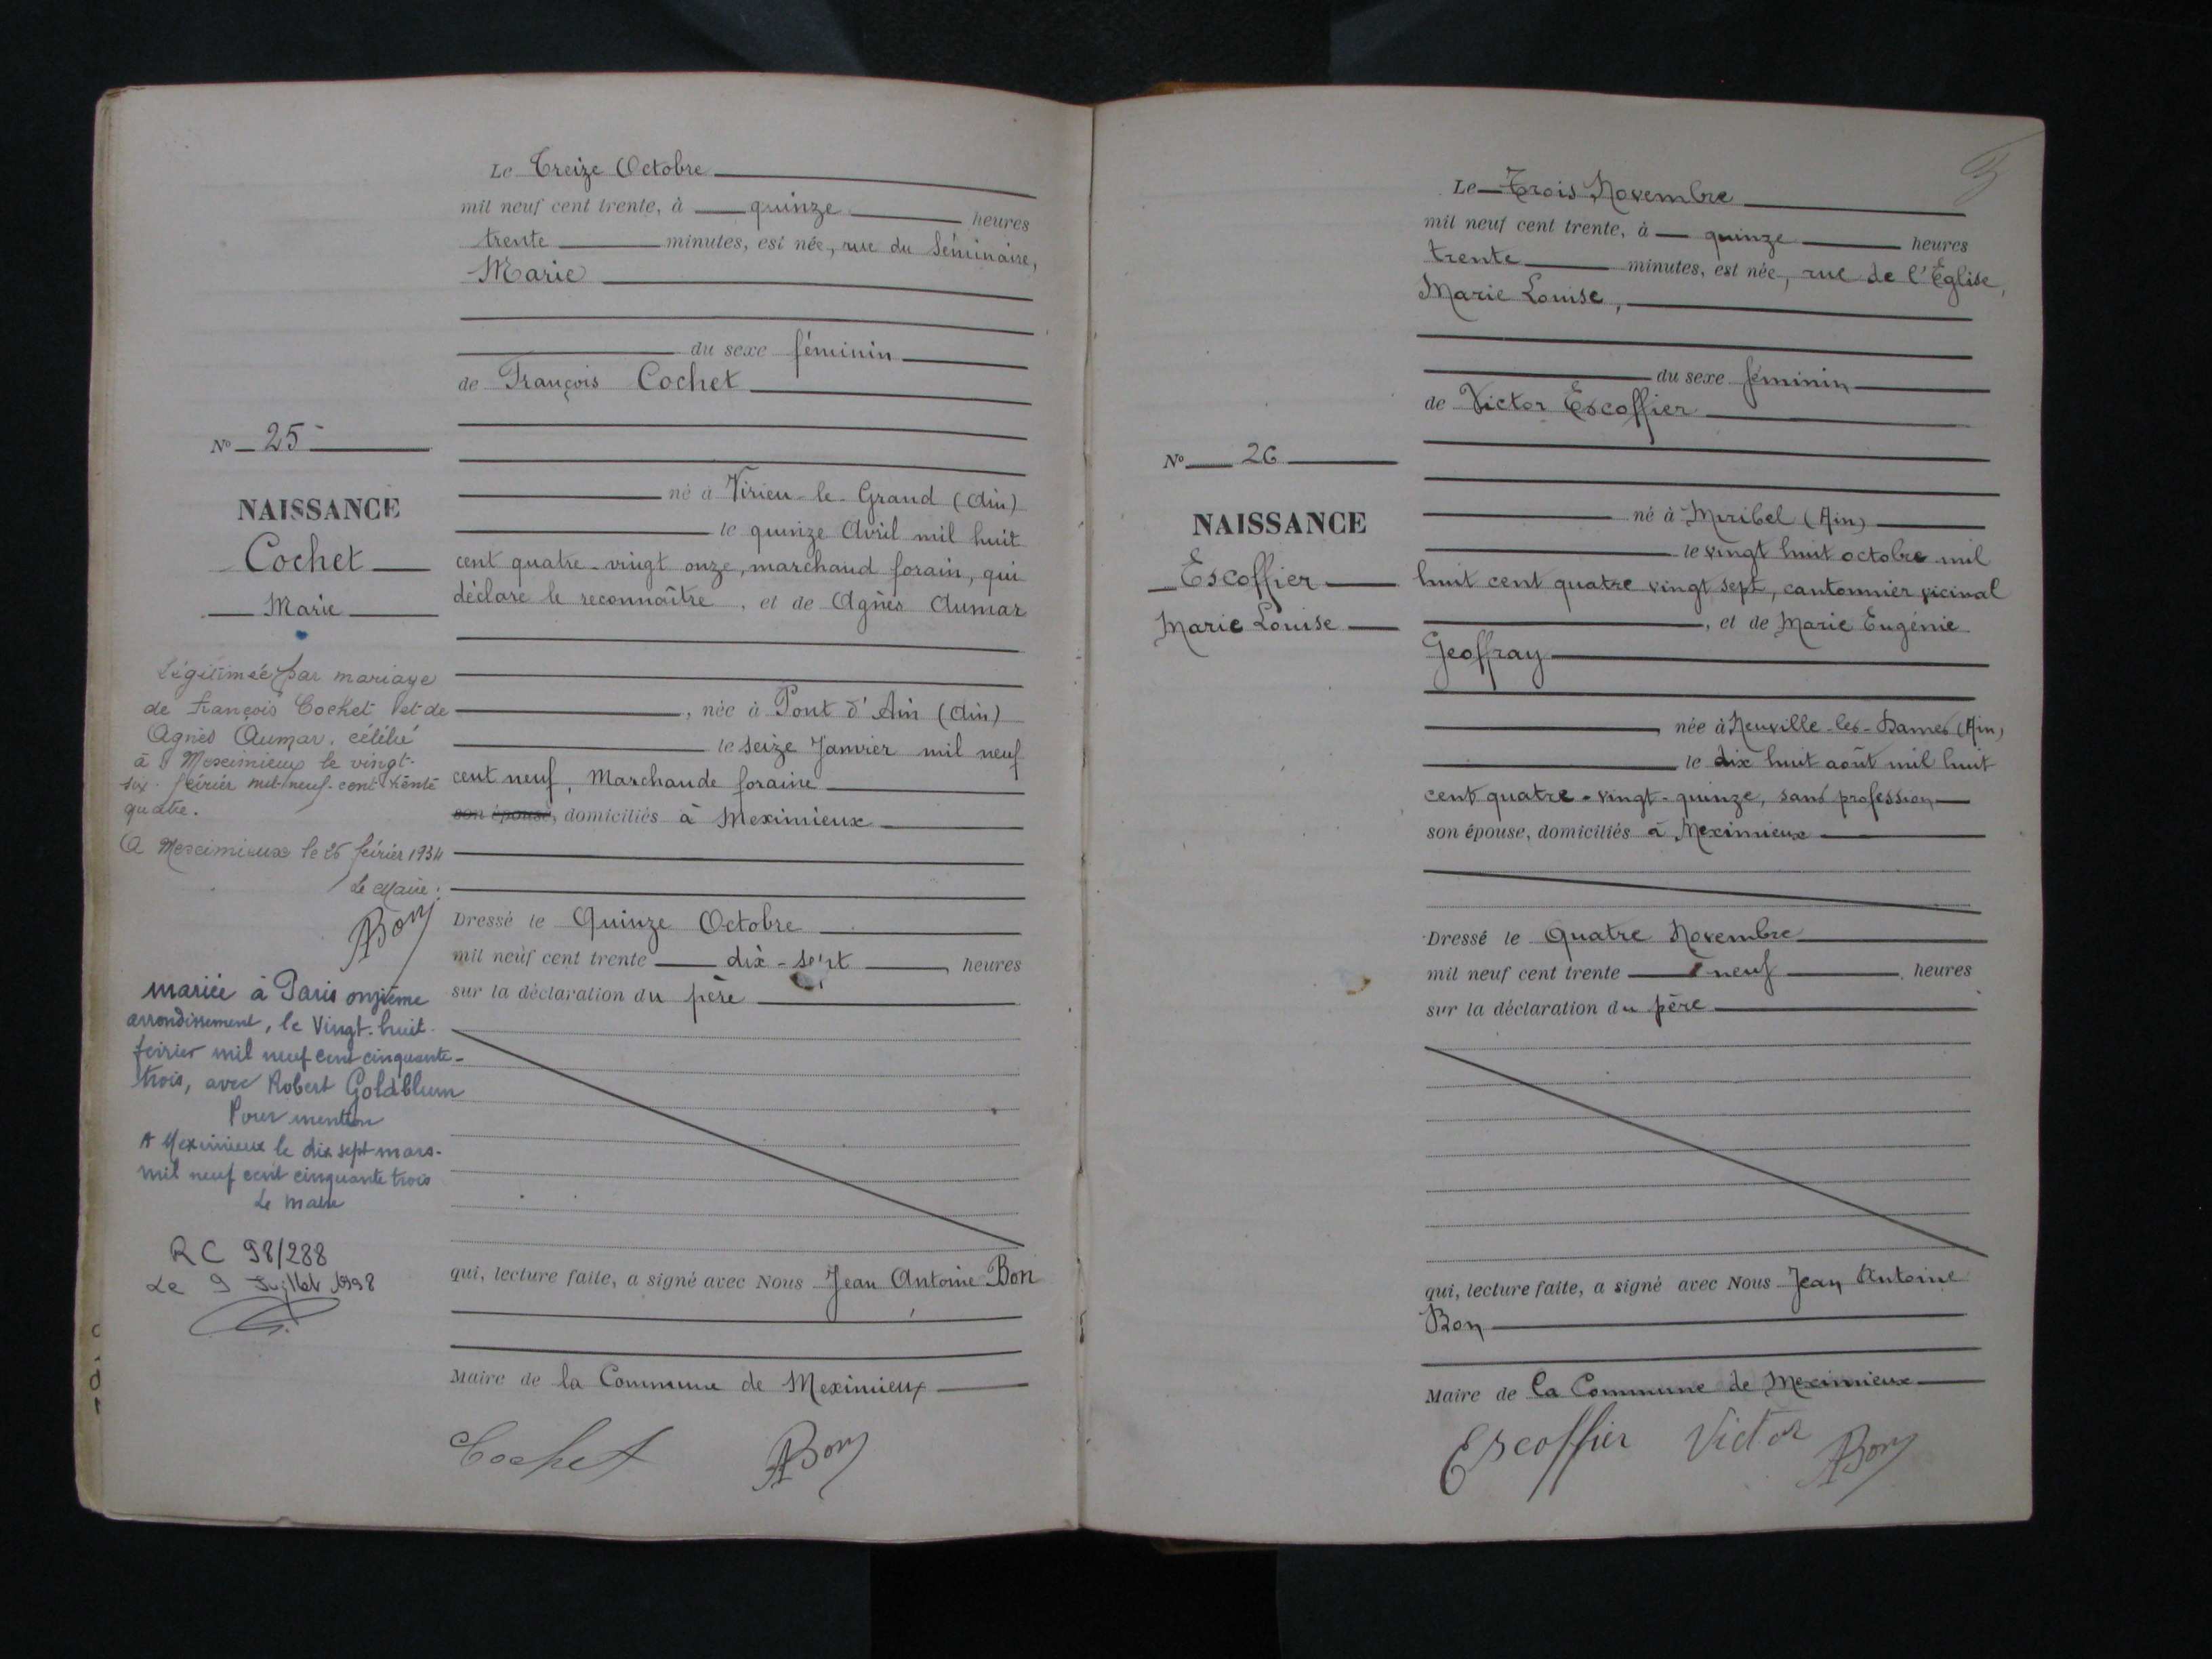 Le Treize Octobre
mil neuf cent trente, à quinze heures
trente minutes, est née, rue du Séminaire,
Marie
du sexe féminin
de François Cochet
né à Virieu-le-Grand (Ain)
le quinze Avril mil huit
cent quatre-vingt onze, marchand forain, qui
déclare le reconnaître, et de Agnès Aumar
, née à Pont d'Ain (Ain)
le seize Janvier mil neuf
cent neuf, Marchande foraine
son épouse, domiciliés à Meximieux
Dressé le Quinze Octobre
mil neuf cent trente dix-sept heures
sur la déclaration du père
qui, lecture faite, a signé avec Nous Jean Antoine Bon
Maire de la Commune de Meximieux
Cochet ABon
N° 25
NAISSANCE
Cochet
Marie
Légitimée par mariage
de François Cochet et de
Agnès Aumar, célébré
à Meximieux le vingt-
six février mil neuf cent trente
quatre.
A Meximieux le 26 février 1934
Le Maire :
ABon
mariée à Paris onzième
arrondissement, le Vingt-huit
février mil neuf cent cinquante-
trois, avec Robert Goldblum
Pour mention
A Meximieux le dix sept mars
mil neuf cent cinquante trois
Le maire
RC 98/288
Le 9 Juillet 1998
Le Trois Novembre
mil neuf cent trente, à quinze heures
trente minutes, est née, rue de l'Église,
Marie Louise,
du sexe féminin
de Victor Escoffier
né à Miribel (Ain)
le vingt huit octobre mil
huit cent quatre vingt sept, cantonnier vicinal
, et de Marie Eugénie
Geoffray
née à Neuville-les-Dames (Ain)
le dix huit août mil huit
cent quatre-vingt-quinze, sans profession
son épouse, domiciliés à Meximieux
Dressé le Quatre Novembre
mil neuf cent trente neuf heures
sur la déclaration du père
qui, lecture faite, a signé avec Nous Jean Antoine
Bon
Maire de la Commune de Meximieux
Escoffier Victor ABon
N° 26
NAISSANCE
Escoffier
Marie Louise